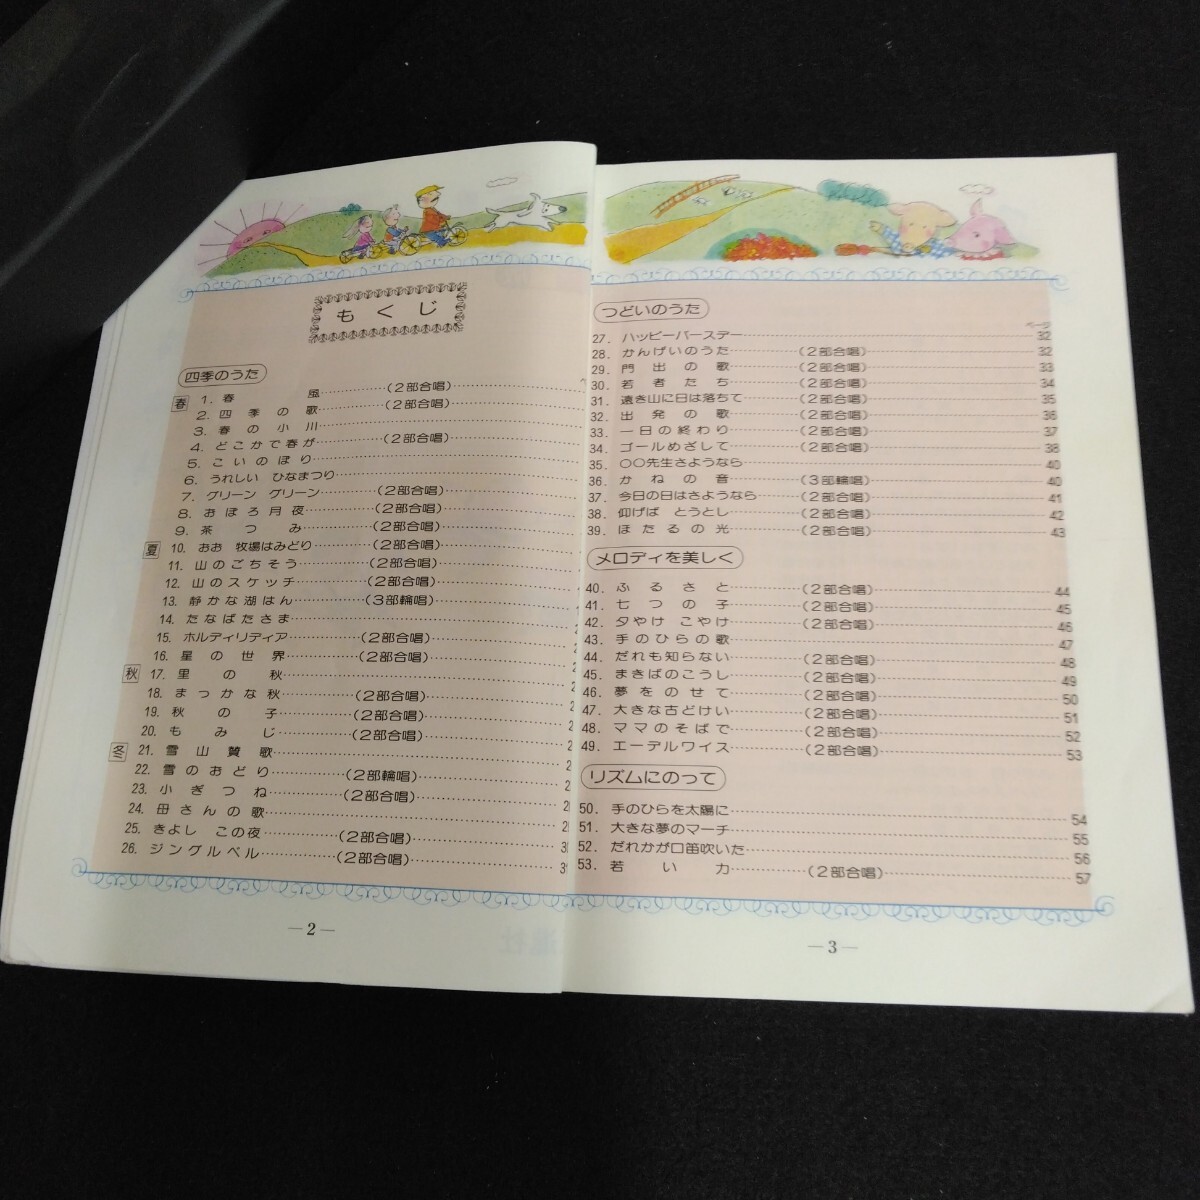 もくじ
四季のうた
春 1. 春風 (2部合唱)
2. 四季の歌 (2部合唱)
3. 春の小川
4. どこかで春が (2部合唱)
5. こいのぼり
6. うれしい ひなまつり
7. グリーン グリーン (2部合唱)
8. おぼろ月夜 (2部合唱)
9. 茶つみ (2部合唱)
夏 10. おお 牧場はみどり (2部合唱)
11. 山のごちそう (2部合唱)
12. 山のスケッチ (2部合唱)
13. 静かな湖はん (3部輪唱)
14. たなばたさま
15. ホルディリディア (2部合唱)
16. 星の世界 (2部合唱)
秋 17. 里の秋
18. まっかな秋 (2部合唱)
19. 秋の子 (2部合唱)
20. もみじ (2部合唱)
冬 21. 雪山賛歌
22. 雪のおどり (2部輪唱)
23. 小ぎつね (2部合唱)
24. 母さんの歌
25. きよし この夜 (2部合唱)
26. ジングルベル (2部合唱)
—2—
つどいのうた
ページ
27. ハッピーバースデー 32
28. かんげいのうた (2部合唱) 32
29. 門出の歌 (2部合唱) 33
30. 若者たち (2部合唱) 34
31. 遠き山に日は落ちて (2部合唱) 35
32. 出発の歌 (2部合唱) 36
33. 一日の終わり (2部合唱) 37
34. ゴールめざして (2部合唱) 38
35. ○○先生さようなら 40
36. かねの音 (3部輪唱) 40
37. 今日の日はさようなら (2部合唱) 41
38. 仰げば とうとし (2部合唱) 42
39. ほたるの光 (2部合唱) 43
メロディを美しく
40. ふるさと (2部合唱) 44
41. 七つの子 (2部合唱) 45
42. 夕やけ こやけ (2部合唱) 46
43. 手のひらの歌 47
44. だれも知らない (2部合唱) 48
45. まきばのこうし (2部合唱) 49
46. 夢をのせて (2部合唱) 50
47. 大きな古どけい (2部合唱) 51
48. ママのそばで (2部合唱) 52
49. エーデルワイス (2部合唱) 53
リズムにのって
50. 手のひらを太陽に 54
51. 大きな夢のマーチ 55
52. だれかが口笛吹いた 56
53. 若い力 (2部合唱) 57
—3—